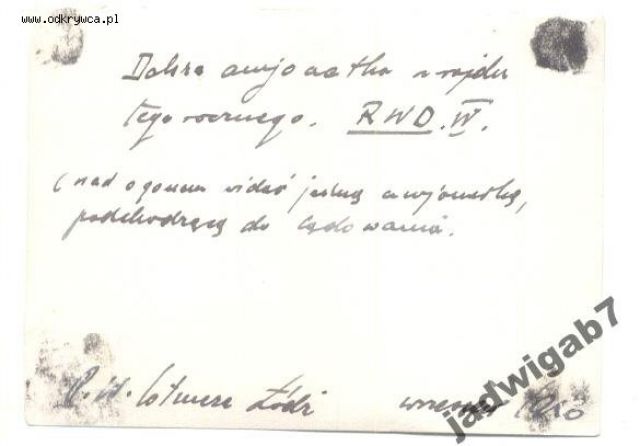 www.odkrywca.pl
Dobra awjonetka z rajdu
tego rocznego. RWD. IV.
(nad ogonem widać jedną awjonetkę,
podchodzącą do lądowania.
Lotnicze Łódź
jadwigab7